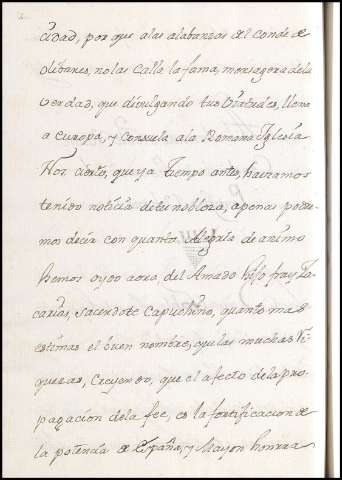 cidad, por que alas alabanzas del Conde de
olibares, no las calla la fama, mensagera dela
verdad, que divulgando tus virtudes, llena
a europa, y Consuela ala Romana Iglesia
Por cierto, que ya tiempo antes, haviamos
tenido noticia de tu nobleza, apenas podre
mos decir con quanta Alegria de animo
hemos oydo aora, del Amado hijo fray Za
carias, Sacerdote Capuchino, quanto mas
estimas el buen nombre, qu las muchas ri
quezas, Creyendo, que el afecto dela pro
pagacion dela fee, es la fortificacion de
la potencia de España, y Mayor honrra